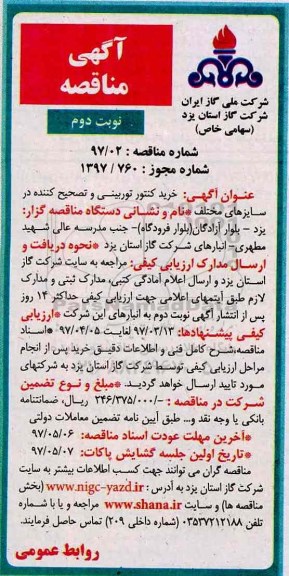 آگهی
مناقصه
نوبت دوم
شرکت ملی گاز ایران
شرکت گاز استان یزد
(سهامی خاص)
شماره مناقصه : ۹۷/۰۲
شماره مجوز : ۷۶۰ / ۱۳۹۷
عنوان آگهی: خرید کنتور توربینی و تصحیح کننده در
سایزهای مختلف *نام و نشانی دستگاه مناقصه گزار:
یزد - بلوار آزادگان(بلوار فرودگاه)- جنب مدرسه عالی شهید
مطهری- انبارهای شرکت گاز استان یزد *نحوه دریافت و
ارسال مدارک ارزیابی کیفی: مراجعه به سایت شرکت گاز
استان یزد و ارسال اعلام آمادگی کتبی، مدارک ثبتی و مدارک
لازم طبق آیتمهای اعلامی جهت ارزیابی کیفی حداکثر ۱۴ روز
پس از انتشار آگهی نوبت دوم به انبارهای این شرکت *ارزیابی
کیفی پیشنهادها: ۹۷/۰۳/۱۳ لغایت ۹۷/۰۴/۰۵ *اسناد
مناقصه،شرح کامل فنی و اطلاعات دقیق خرید پس از انجام
مراحل ارزیابی کیفی توسط شرکت گاز استان یزد به شرکتهای
مورد تایید ارسال خواهد گردید. *مبلغ و نوع تضمین
شرکت در مناقصه : -/۲۴۶/۳۷۵/۰۰۰ ریال، ضمانتنامه
بانکی یا وجه نقد و... طبق آیین نامه تضمین معاملات دولتی
*آخرین مهلت عودت اسناد مناقصه: ۹۷/۰۵/۰۶
*تاریخ اولین جلسه گشایش پاکات: ۹۷/۰۵/۰۷
مناقصه گران می توانند جهت کسب اطلاعات بیشتر به سایت
شرکت گاز استان یزد به آدرس : www.nigc-yazd.ir (بخش
مناقصه ها) و سایت www.shana.ir مراجعه و یا با شماره
تلفن ۰۳۵۳۷۲۱۲۱۸۸ (شماره داخلی ۲۰۹) تماس حاصل فرمایند.
روابط عمومی